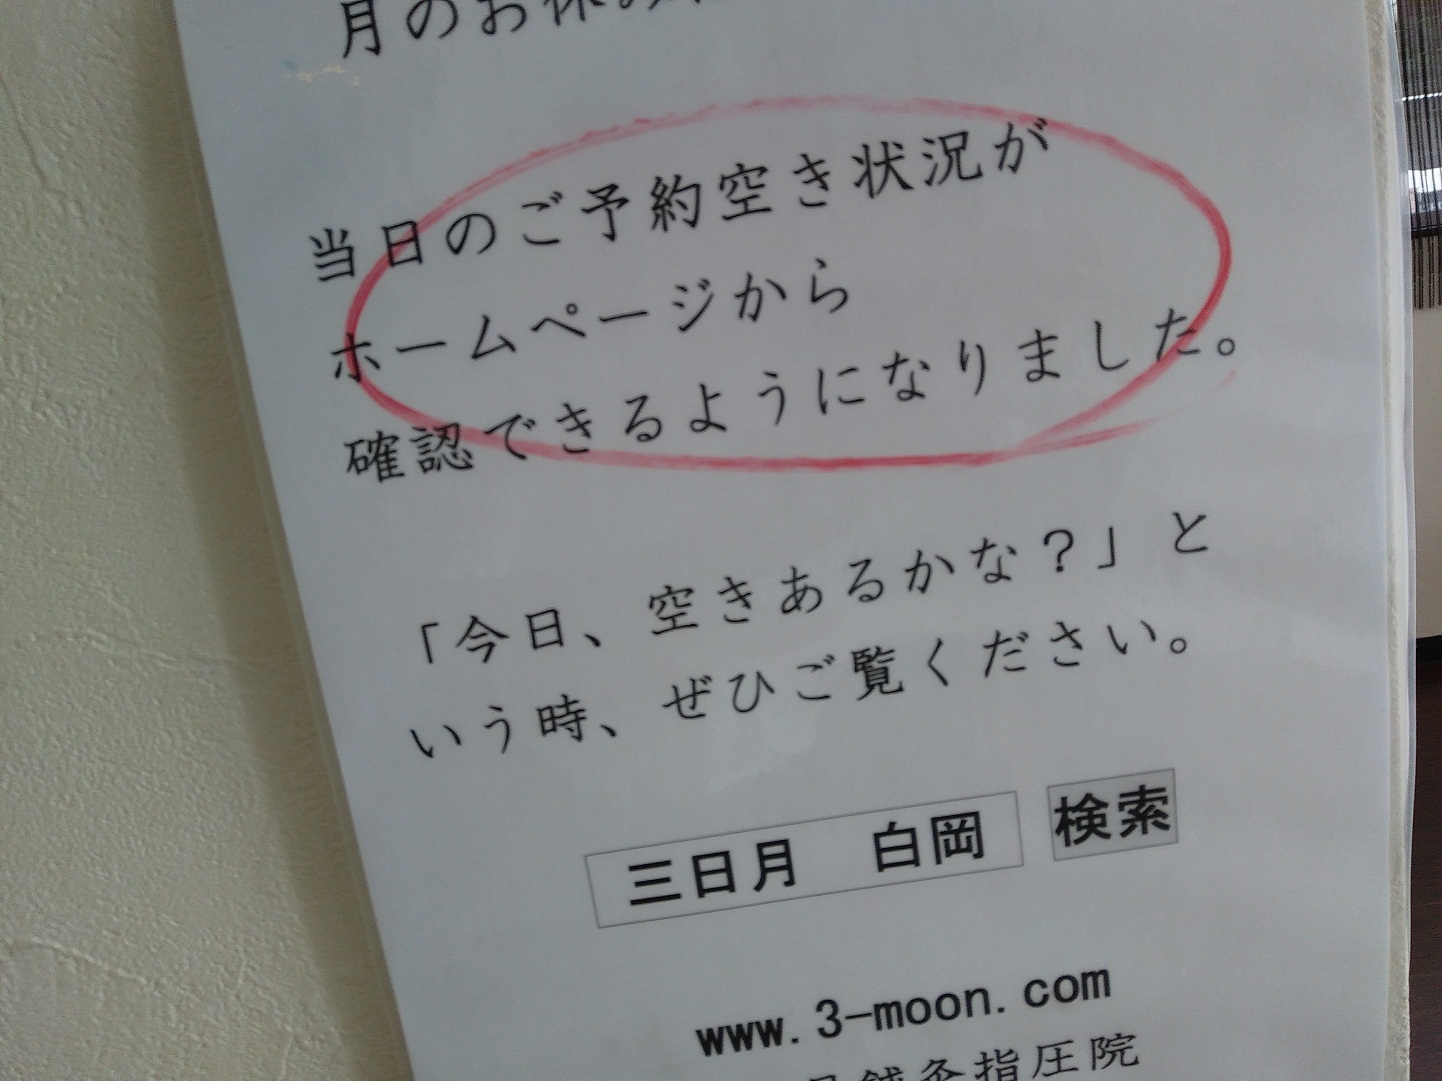 月のお休み
当日のご予約空き状況が
ホームページから
確認できるようになりました。
「今日、空きあるかな？」と
いう時、ぜひご覧ください。
三日月　白岡 検索
www.3-moon.com
鍼灸指圧院